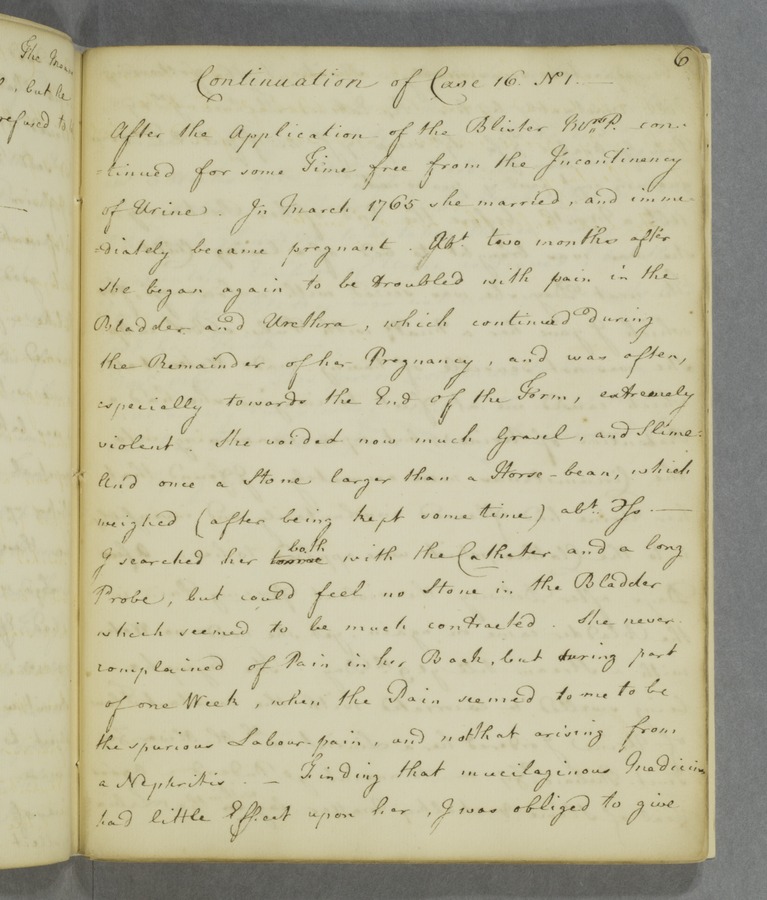 The
, but he
refused to
6
Continuation of Case 16. No 1.
After the Application of the Blister con-
-tinued for some Time free from the Incontinency
of Urine. In March 1765 she married, and imme
-diately became pregnant. Abt. two months after
she began again to be troubled with pain in the
Bladder and Urethra, which continued during
the Remainder of her Pregnancy, and was often,
especially towards the End of the Term, extremely
violent. She voided now much Gravel, and Slime:
And once a Stone larger than a Horse-bean, which
weighed (after being kept some time) abt. ℈ſs. —
I searched her both with the Catheter and a long
Probe, but could feel no Stone in the Bladder
which seemed to be much contracted. She never
complained of Pain in her Back, but during part
of one Week, when the Pain seemed to me to be
the spurious Labour-pain, and not that arising from
a Nephritis. — Finding that mucilaginous Medicin
had little Effect upon her, I was obliged to give